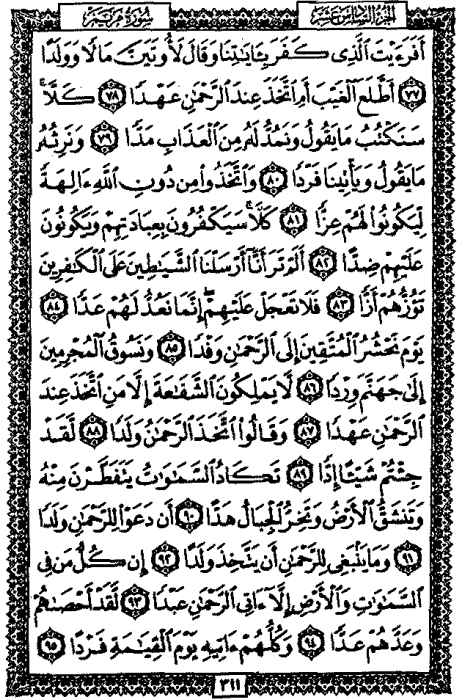 سورة مريم
الجزء السادس عشر
أَفَرَءَيْتَ الَّذِي كَفَرَ بِـَٔايَـٰتِنَا وَقَالَ لَأُوتَيَنَّ مَالًا وَوَلَدًا
﴿٧٧﴾ أَطَّلَعَ الْغَيْبَ أَمِ اتَّخَذَ عِندَ الرَّحْمَـٰنِ عَهْدًا ﴿٧٨﴾ كَلَّا ۚ
سَنَكْتُبُ مَا يَقُولُ وَنَمُدُّ لَهُ مِنَ الْعَذَابِ مَدًّا ﴿٧٩﴾ وَنَرِثُهُ
مَا يَقُولُ وَيَأْتِينَا فَرْدًا ﴿٨٠﴾ وَاتَّخَذُوا مِن دُونِ اللَّهِ ءَالِهَةً
لِّيَكُونُوا لَهُمْ عِزًّا ﴿٨١﴾ كَلَّا ۚ سَيَكْفُرُونَ بِعِبَادَتِهِمْ وَيَكُونُونَ
عَلَيْهِمْ ضِدًّا ﴿٨٢﴾ أَلَمْ تَرَ أَنَّا أَرْسَلْنَا الشَّيَـٰطِينَ عَلَى الْكَـٰفِرِينَ
تَؤُزُّهُمْ أَزًّا ﴿٨٣﴾ فَلَا تَعْجَلْ عَلَيْهِمْ ۖ إِنَّمَا نَعُدُّ لَهُمْ عَدًّا ﴿٨٤﴾
يَوْمَ نَحْشُرُ الْمُتَّقِينَ إِلَى الرَّحْمَـٰنِ وَفْدًا ﴿٨٥﴾ وَنَسُوقُ الْمُجْرِمِينَ
إِلَىٰ جَهَنَّمَ وِرْدًا ﴿٨٦﴾ لَّا يَمْلِكُونَ الشَّفَـٰعَةَ إِلَّا مَنِ اتَّخَذَ عِندَ
الرَّحْمَـٰنِ عَهْدًا ﴿٨٧﴾ وَقَالُوا اتَّخَذَ الرَّحْمَـٰنُ وَلَدًا ﴿٨٨﴾ لَّقَدْ
جِئْتُمْ شَيْـًٔا إِدًّا ﴿٨٩﴾ تَكَادُ السَّمَـٰوَٰتُ يَتَفَطَّرْنَ مِنْهُ
وَتَنشَقُّ الْأَرْضُ وَتَخِرُّ الْجِبَالُ هَدًّا ﴿٩٠﴾ أَن دَعَوْا لِلرَّحْمَـٰنِ وَلَدًا
﴿٩١﴾ وَمَا يَنبَغِي لِلرَّحْمَـٰنِ أَن يَتَّخِذَ وَلَدًا ﴿٩٢﴾ إِن كُلُّ مَن فِي
السَّمَـٰوَٰتِ وَالْأَرْضِ إِلَّا ءَاتِي الرَّحْمَـٰنِ عَبْدًا ﴿٩٣﴾ لَّقَدْ أَحْصَىٰهُمْ
وَعَدَّهُمْ عَدًّا ﴿٩٤﴾ وَكُلُّهُمْ ءَاتِيهِ يَوْمَ الْقِيَـٰمَةِ فَرْدًا ﴿٩٥﴾
٣١١